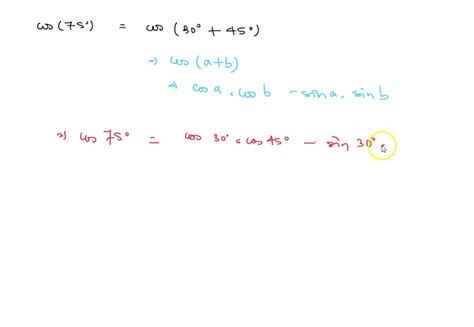 cos (75°) = cos (30° + 45°)
→ cos (a+b)
⇒ cos a . cos b - sin a . sin b
⇒ cos 75° = cos 30° . cos 45° - sin 30° .